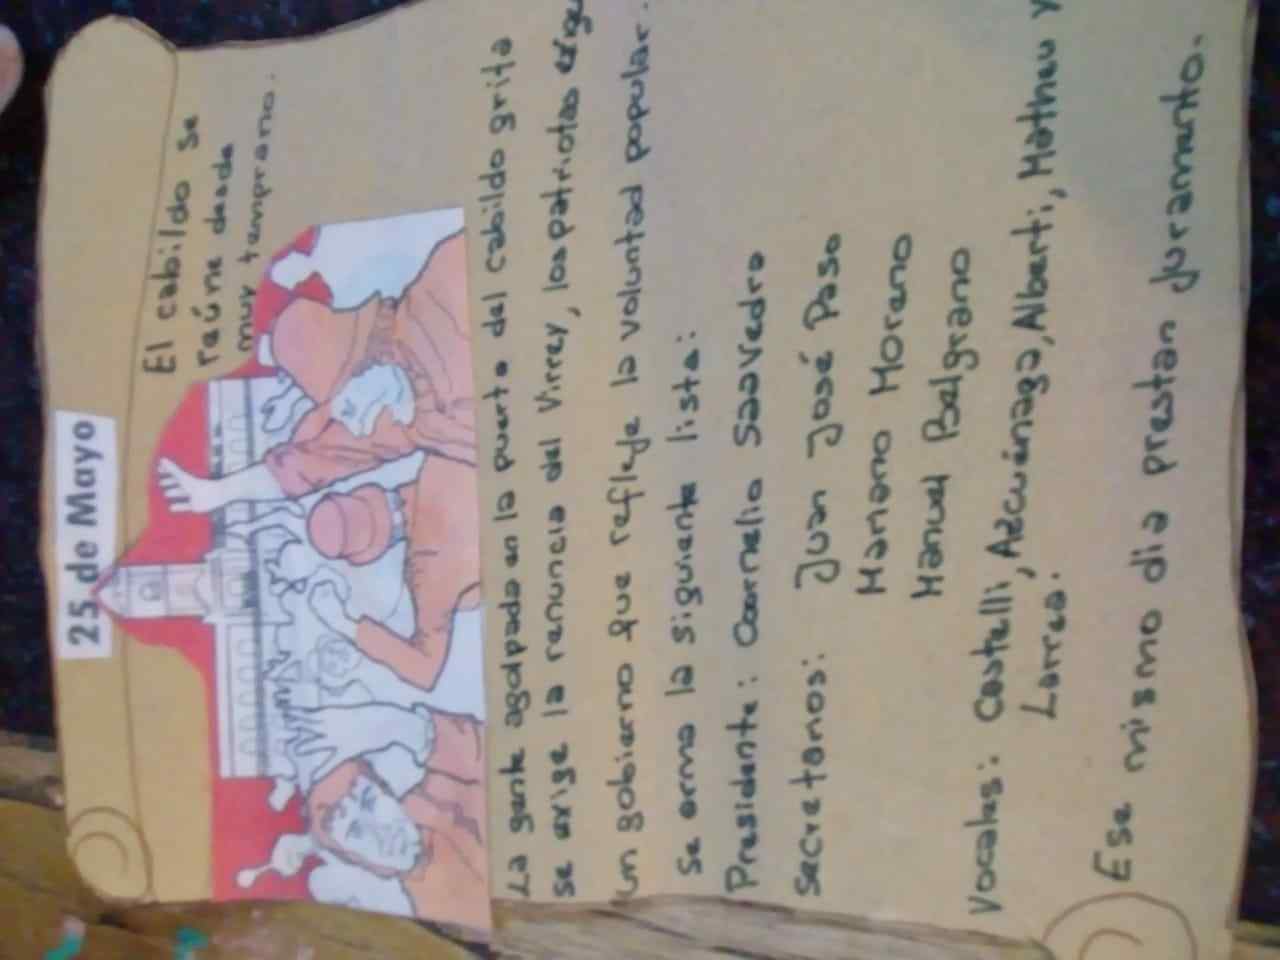 25 de Mayo
El cabildo se
reúne desde
muy temprano.
La gente agolpada en la puerta del cabildo grita
se exige la renuncia del Virrey, los patriotas
un gobierno que refleje la voluntad popular.
Se arma la siguiente lista:
Presidente: Cornelio Saavedra
Secretarios: Juan José Paso
Mariano Moreno
Manuel Belgrano
Vocales: Castelli, Azcuénaga, Alberti, Matheu y
Larrea.
Ese mismo día prestan juramento.